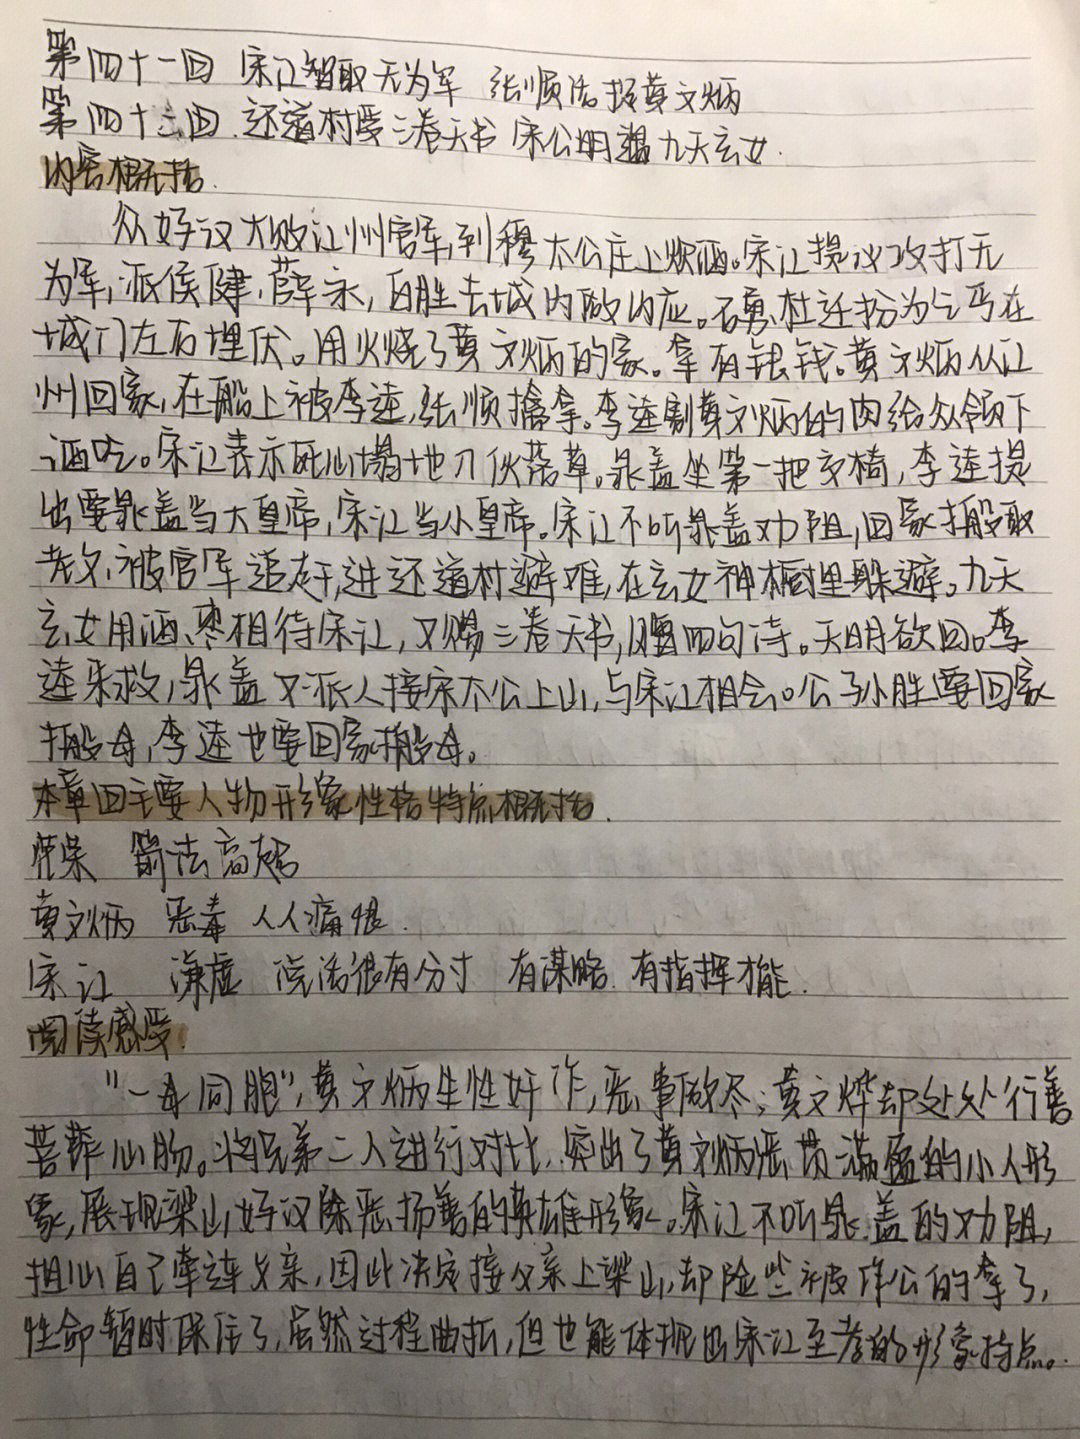 第四十一回 宋江智取无为军 张顺活捉黄文炳
第四十二回 还道村受三卷天书 宋公明遇九天玄女.
内容概括.
众好汉大败江州官军,到穆太公庄上炊酒。宋江提议攻打无
为军,派侯健,薛永,白胜去城内做内应。石勇杜迁扮为乞丐在
城门左右埋伏。用火烧了黄文炳的家。拿有银钱。黄文炳从江
州回家,在船上被李逵,张顺擒拿。李逵割黄文炳的肉给众领下
酒吃。宋江表示死心塌地入伙落草。晁盖坐第一把交椅,李逵提
出要晁盖当大皇帝,宋江当小皇帝。宋江不听晁盖劝阻,回家搬取
老父,被官军追赶,进还道村避难,在玄女神橱里躲避。九天
玄女用酒、枣相待宋江,又赐三卷天书,赠四句诗。天明欲回。李
逵来救,晁盖又派人接宋太公上山,与宋江相会。公孙胜要回家
搬母,李逵也要回家搬母。
本章回主要人物形象性格特点概括.
花荣 箭法高超
黄文炳 恶毒 人人痛恨.
宋江 谦虚 说话很有分寸 有谋略. 有指挥才能.
阅读感受.
"一母同胞",黄文炳生性奸诈,恶事做尽;黄文烨却处处行善
菩萨心肠。将兄弟二人进行对比,突出了黄文炳恶贯满盈的小人形
象,展现梁山好汉除恶扬善的英雄形象。宋江不听晁盖的劝阻,
担心自己牵连父亲,因此决定接父亲上梁山,却险些被作公的拿了,
性命暂时保住了,虽然过程曲折,但也能体现出宋江至孝的形象特点。